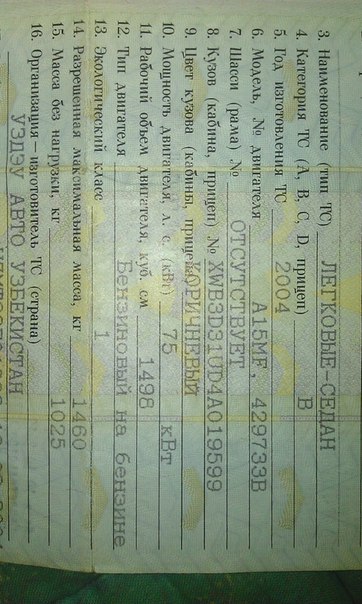 3. Наименование (тип ТС) ЛЕГКОВЫЕ-СЕДАН
4. Категория ТС (А, В, С, D, прицеп) B
5. Год изготовления ТС 2004
6. Модель, № двигателя A15MF, 429733B
7. Шасси (рама) № ОТСУТСТВУЕТ
8. Кузов (кабина, прицеп) № XWB3D31UD4A019599
9. Цвет кузова (кабины, прицепа) КОРИЧНЕВЫЙ
10. Мощность двигателя, л. с. (кВт) 75 кВт
11. Рабочий объем двигателя, куб. см 1498
12. Тип двигателя Бензиновый на бензине
13. Экологический класс 1
14. Разрешенная максимальная масса, кг 1460
15. Масса без нагрузки, кг 1025
16. Организация – изготовитель ТС (страна)
УЗДЭУ АВТО УЗБЕКИСТАН